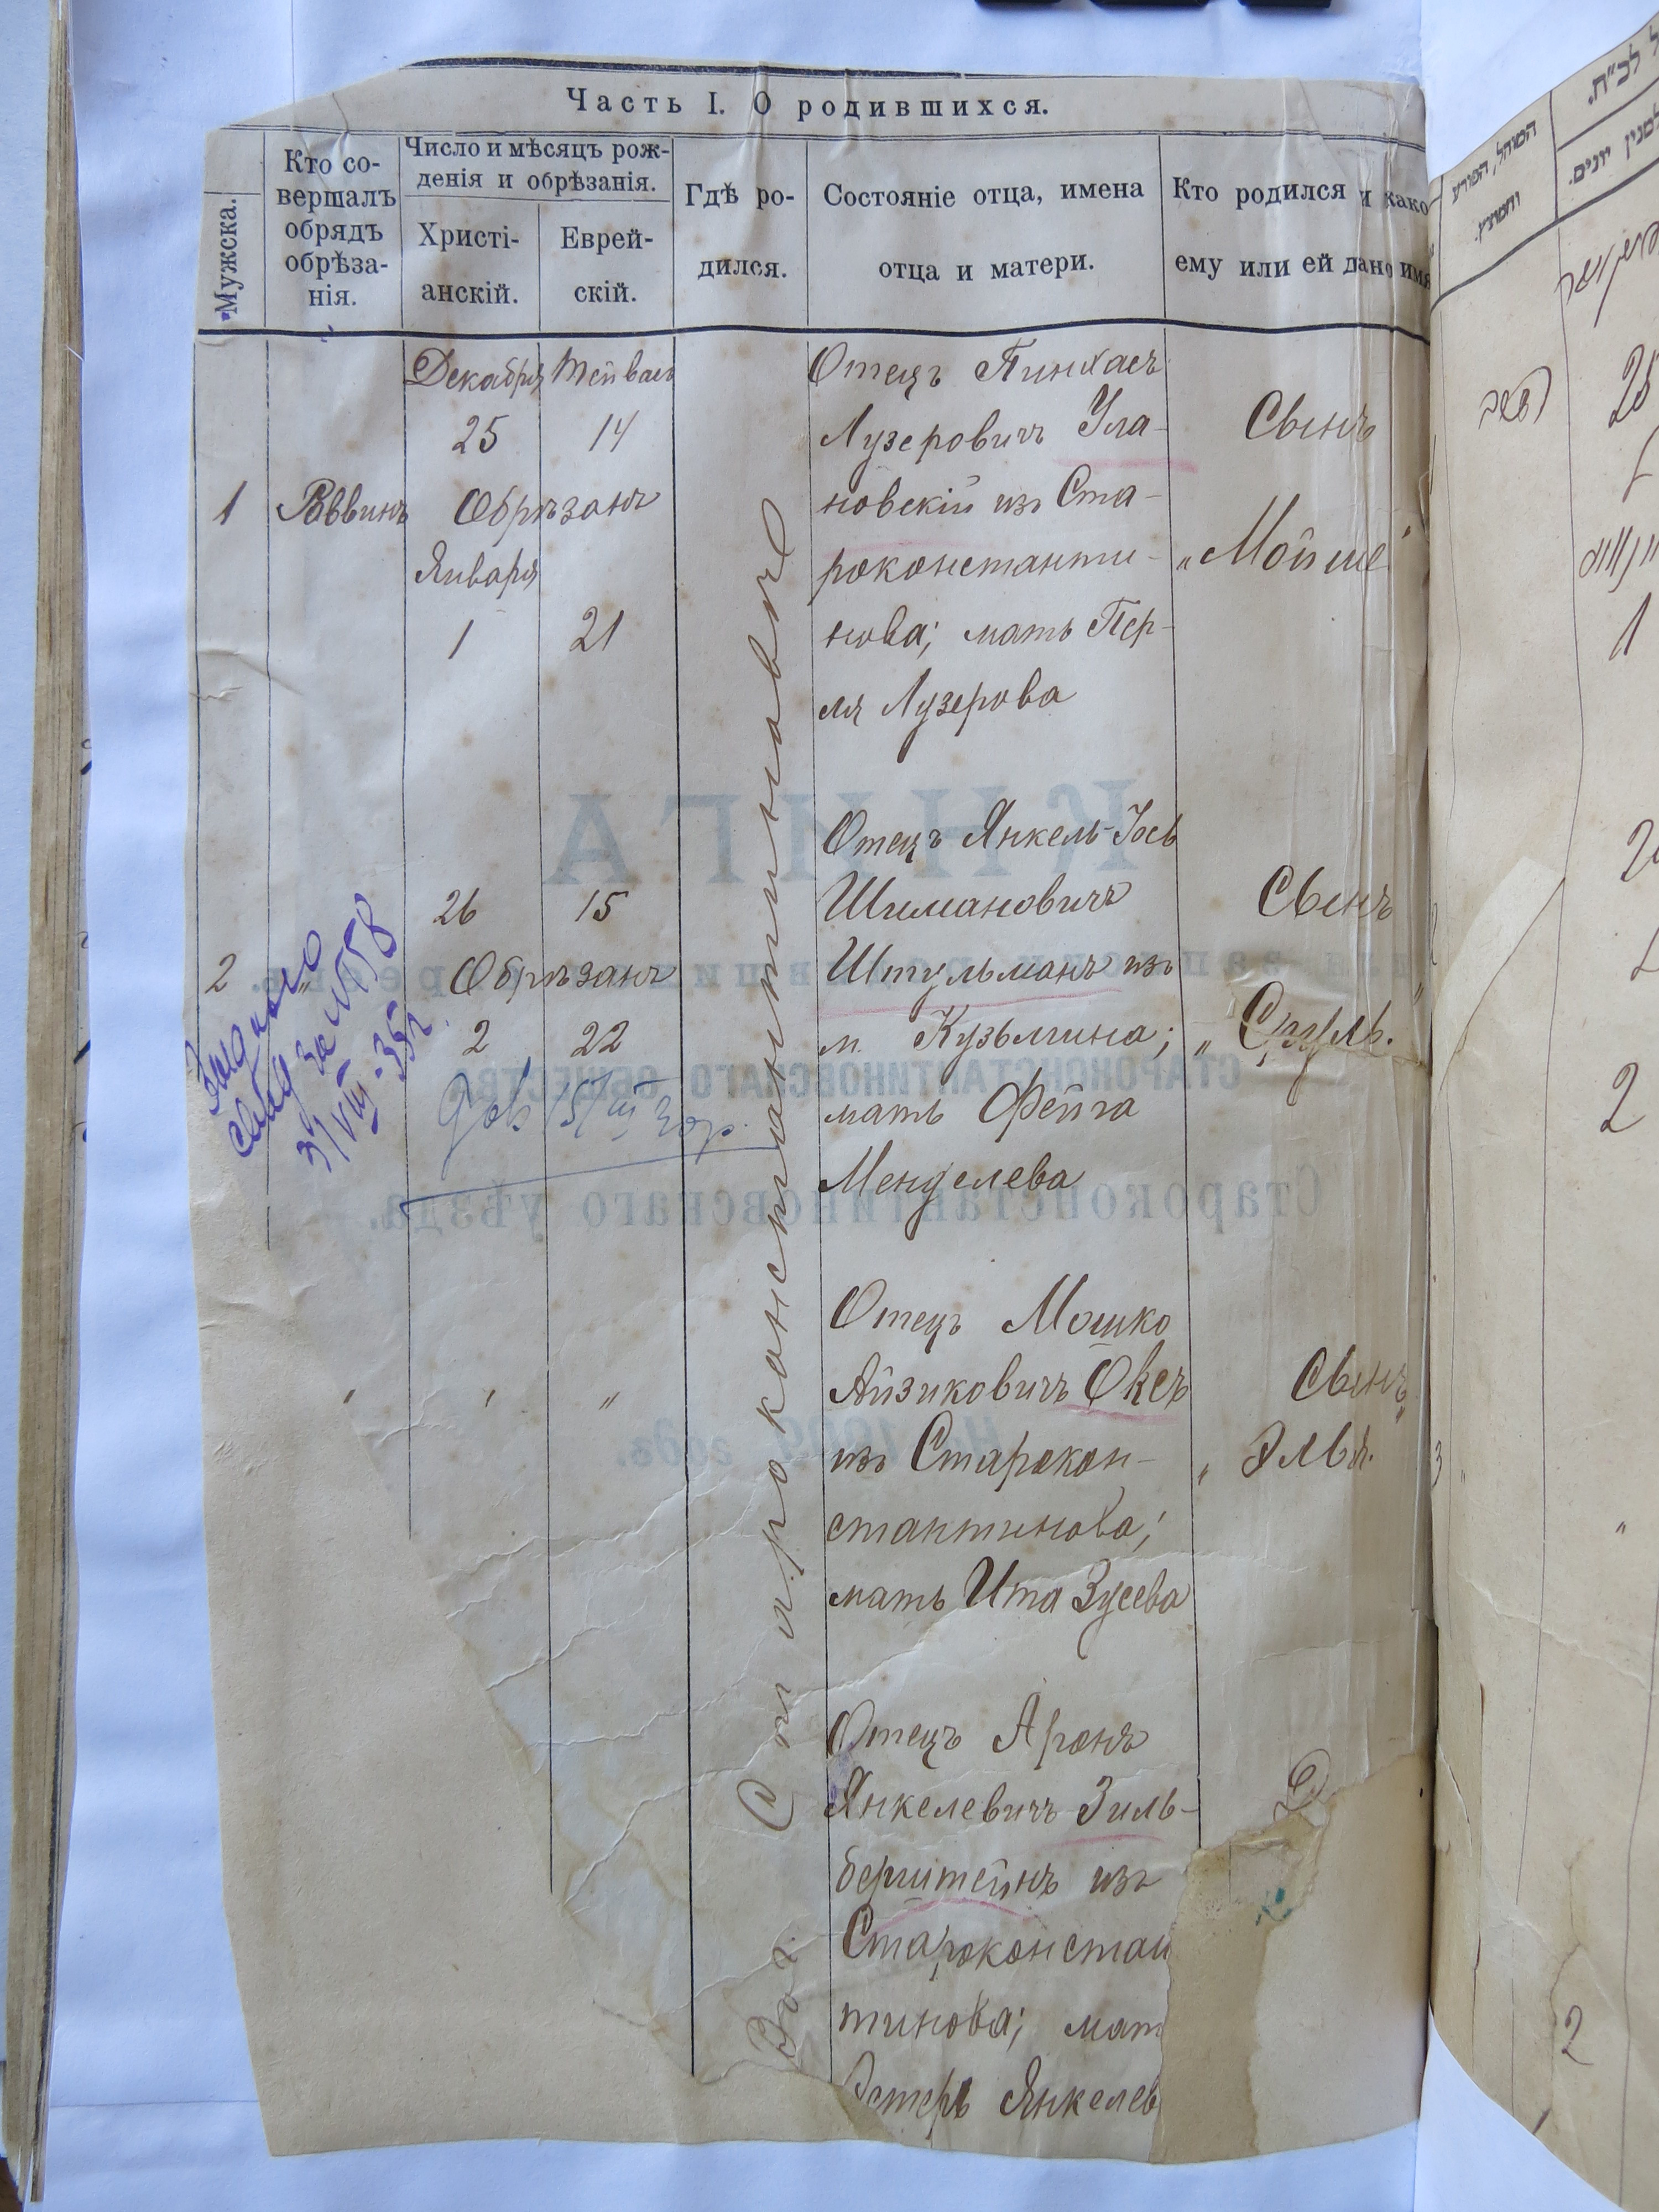 Часть I. О родившихся.
Мужска.
Кто со-
вершалъ
обрядъ
обрѣза-
нія.
Число и мѣсяцъ рож-
денія и обрѣзанія.
Христі-
анскій.
Еврей-
скій.
Гдѣ ро-
дился.
Состояніе отца, имена
отца и матери.
Кто родился и како
ему или ей дано имя
1
Раввинъ
Декабря Тейвасъ
25 14
Обрѣзанъ
Января
1 21
Въ г. Староконстантиновѣ
Отецъ Пинхасъ
Лузеровичъ Ула-
новскій изъ Ста-
роконстанти-
нова; мать Пер-
ля Лузерова
Сынъ
„Мойше"
2
„
26 15
Обрѣзанъ
2 22
Отецъ Янкель-Іось
Шимановичъ
Штульманъ изъ
м. Кузьмина;
мать Фейга
Менделева
Сынъ
„Сруль."
за № 58
31/VIII-35г.
„ „ „
Отецъ Мошко
Айзиковичъ Оксъ
изъ Старокон-
стантинова;
мать Ита Зусева
Сынъ
„Эля."
Отецъ Аронъ
Янкелевичъ Зиль-
берштейнъ изъ
Староконстан
тинова; мат
Эстеръ Янкелев
КНИГА
СТАРОКОНСТАНТИНОВСКАГО ОБЩЕСТВА
Староконстантиновскаго уѣзда.
годъ.
המוהל, הפורע
והמוצץ.
למנין יונים.
25
1
2
2
3